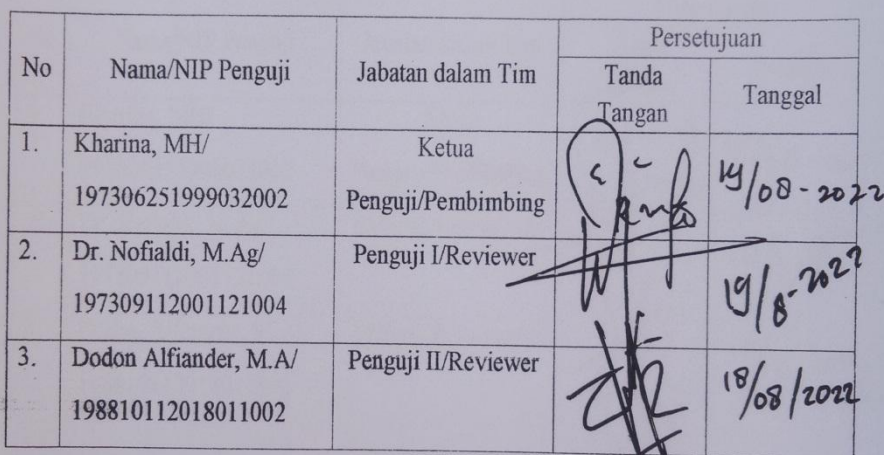 No
Nama/NIP Penguji
Jabatan dalam Tim
Persetujuan
Tanda
Tangan
Tanggal
1.
Kharina, MH/
197306251999032002
Ketua
Penguji/Pembimbing
19/08-2022
2.
Dr. Nofialdi, M.Ag/
197309112001121004
Penguji I/Reviewer
19/8-2022
3.
Dodon Alfiander, M.A/
198810112018011002
Penguji II/Reviewer
18/08/2022